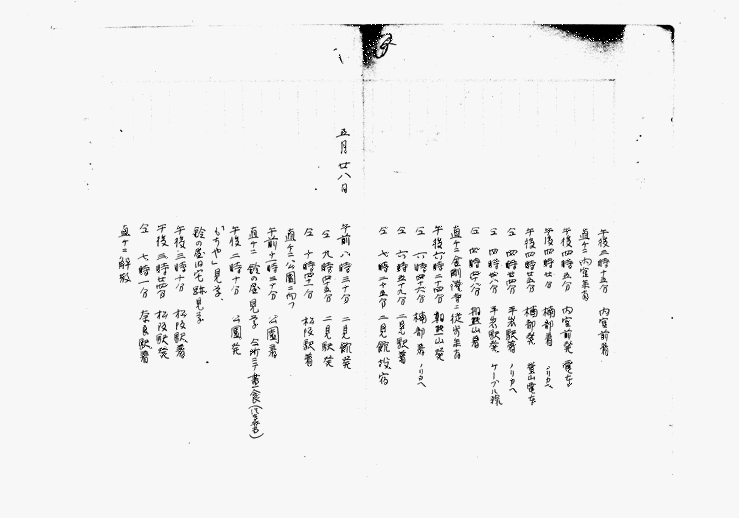 午後三時十五分 内宮前着
直チニ内宮参拝
午後四時五分 内宮前発 電車
午後四時廿分 楠部着 ノリカヘ
午後四時廿五分 楠部発 登山電車
仝 四時四分 平岩駅着 ノリカヘ
仝 四時 八分 平岩駅発 ケーブル
仝 四時 八分 朝熊山着
直チニ金剛證寺ニ徒歩参拝
午後六時二十四分 朝熊山発
仝 六時四十六分 楠部着 ノリカヘ
仝 六時五十九分 二見駅着
仝 七時二十五分 二見館投宿
五月廿八日
午前八時三十分 二見館発
仝 九時四五分 二見駅発
仝 十時四十一分 松阪駅着
直チニ公園ニ向フ
午前十一時三十分 公園着
直チニ鈴の屋見学 仝所ニテ昼食
午後二時十分 公園発
見学
鈴の屋旧宅跡見学
午後三時十分 松阪駅着
午後三時廿四分 松阪駅発
仝 七時一分 奈良駅着
直チニ解散